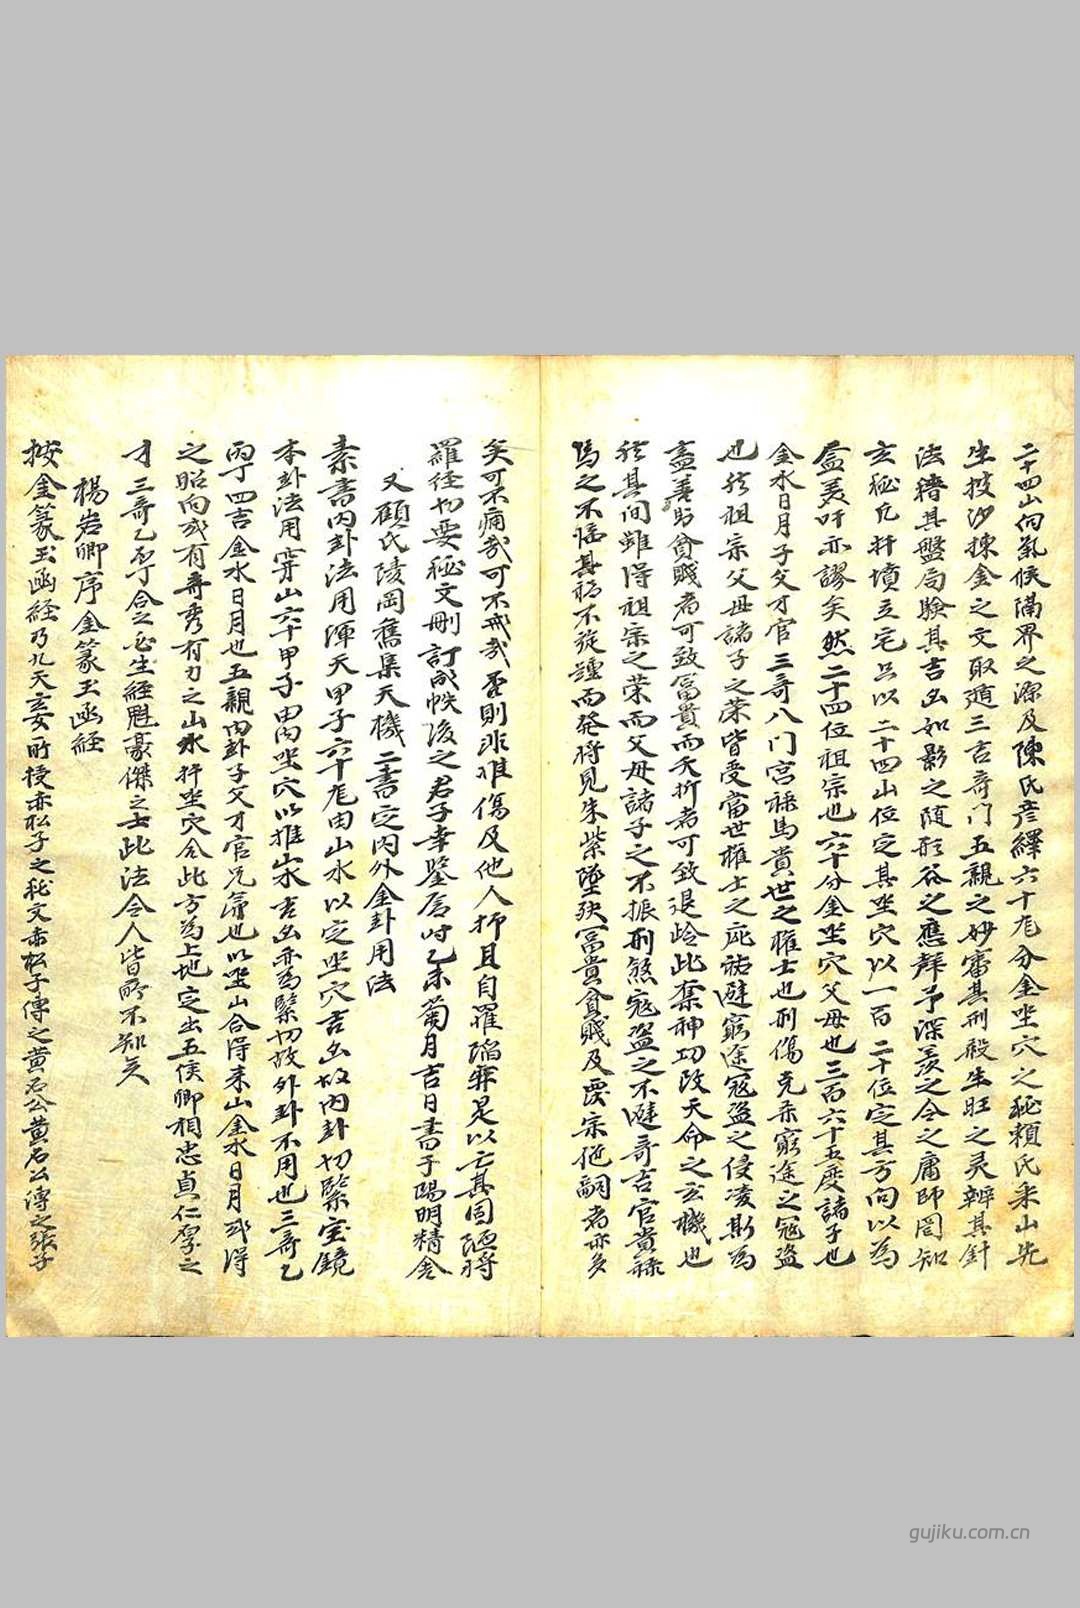 二十四山向氣候隔界之源及陳氏彦繹六十尨分金坐穴之秘賴氏来山先
生披沙揀金之文取遁三吉奇门五親之妙審其刑殺生旺之灵辨其針
法稽其盤局驗其吉凶如影之随形谷之應聲予深羡之今之庸師罔知
玄秘凢扦墳立宅只以二十四山位定其坐穴以一百二十位定其方向以為
盡美吁亦謬矣然二十四位祖宗也六十分金坐穴父母也三百六十五度諸子也
金水日月子父才官三奇八门宮禄馬貴世之權士也刑傷克杀窮途之寇盗
也於祖宗父母諸子之荣皆受當世權士之庇祐避窮途寇盗之侵凌斯為
盡善貧賤者可致冨貴而夭折者可致遐岭此奪神功改天命之玄機也
於其間雖得祖宗之荣而父母諸子之不振刑煞寇盗之不避奇吉官貴禄
馬之不臨其禍不旋踵而発将見朱紫墜冨貴貧賤及覆宗絶嗣者亦多
矣可不痛哉可不戒哉否則非惟傷及他人抑且自罹罪是以亡其固陋将
羅经切要秘文刪訂成帙後之君子幸鑒焉时乙未菊月吉日書于陽明精舍
又顧氏陵岡舊集天機二書定内外金卦用法
素書内卦法用渾天甲子六十尨由山水以定坐穴吉凶故内卦切緊宝鏡
本卦法用穿山六十甲子由内坐穴以推山水吉凶亦為緊切故外卦不用也三奇乙
丙丁四吉金水日月也五親内卦子父才官兄弟也以坐山合得来山金水日月或得
之昭向或有奇秀有力之山水扦坐穴合此方為上地定出五侯卿相忠貞仁厚之
才三奇乙丙丁合之必生経魁豪傑之士此法今人皆不知矣
楊岩卿序金篆玉函経
按金篆玉函経乃九天玄女所授赤松子之秘文赤松子傳之黄石公黄石公傳之張子
gujiku.com.cn